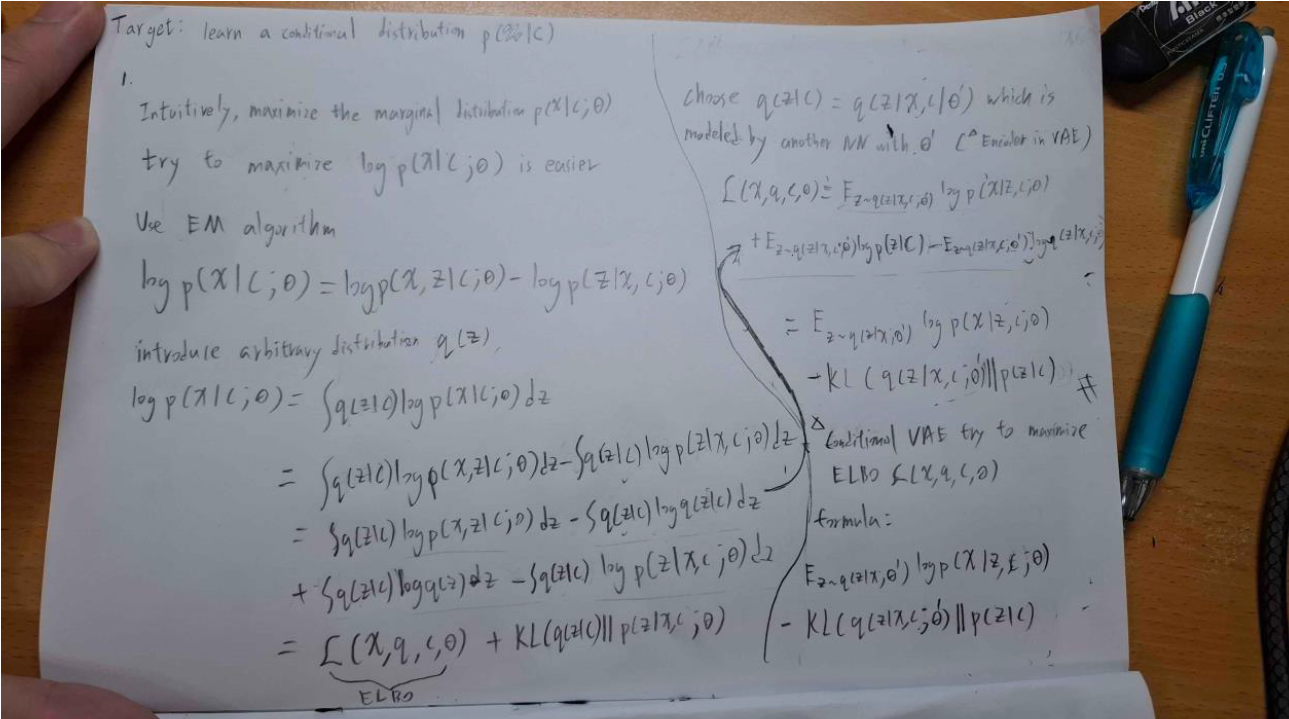 Target: learn a conditional distribution p(x|c)
1.
Intuitively, maximize the marginal distribution p(x|c;θ)
try to maximize log p(x|c;θ) is easier
Use EM algorithm
log p(x|c;θ) = log p(x,z|c;θ) - log p(z|x,c;θ)
introduce arbitrary distribution q(z)
log p(x|c;θ) = ∫q(z|c) log p(x|c;θ) dz
= ∫q(z|c) log p(x,z|c;θ) dz - ∫q(z|c) log p(z|x,c;θ) dz
= ∫q(z|c) log p(x,z|c;θ) dz - ∫q(z|c) log q(z|c) dz
+ ∫q(z|c) log q(z) dz - ∫q(z|c) log p(z|x,c;θ) dz
= L(x,q,c,θ) + KL(q(z|c)||p(z|x,c;θ)
ELBO
choose q(z|c) = q(z|x,c|θ') which is
modeled by another NN with θ' (△ Encoder in VAE)
L(x,q,c,θ) = E_{z~q(z|x,c;θ')} log p(x|z,c;θ)
+ E_{z~q(z|x,c;θ')} log p(z|c) - E_{z~q(z|x,c;θ')} log q(z|x,c;θ')
= E_{z~q(z|x,θ')} log p(x|z,c;θ)
- KL(q(z|x,c;θ')||p(z|c)) #
△ Conditional VAE try to maximize
ELBO L(x,q,c,θ)
formula:
E_{z~q(z|x,θ')} log p(x|z,c;θ)
- KL(q(z|x,c;θ')||p(z|c)
Black
uni CLIFTER 0.5